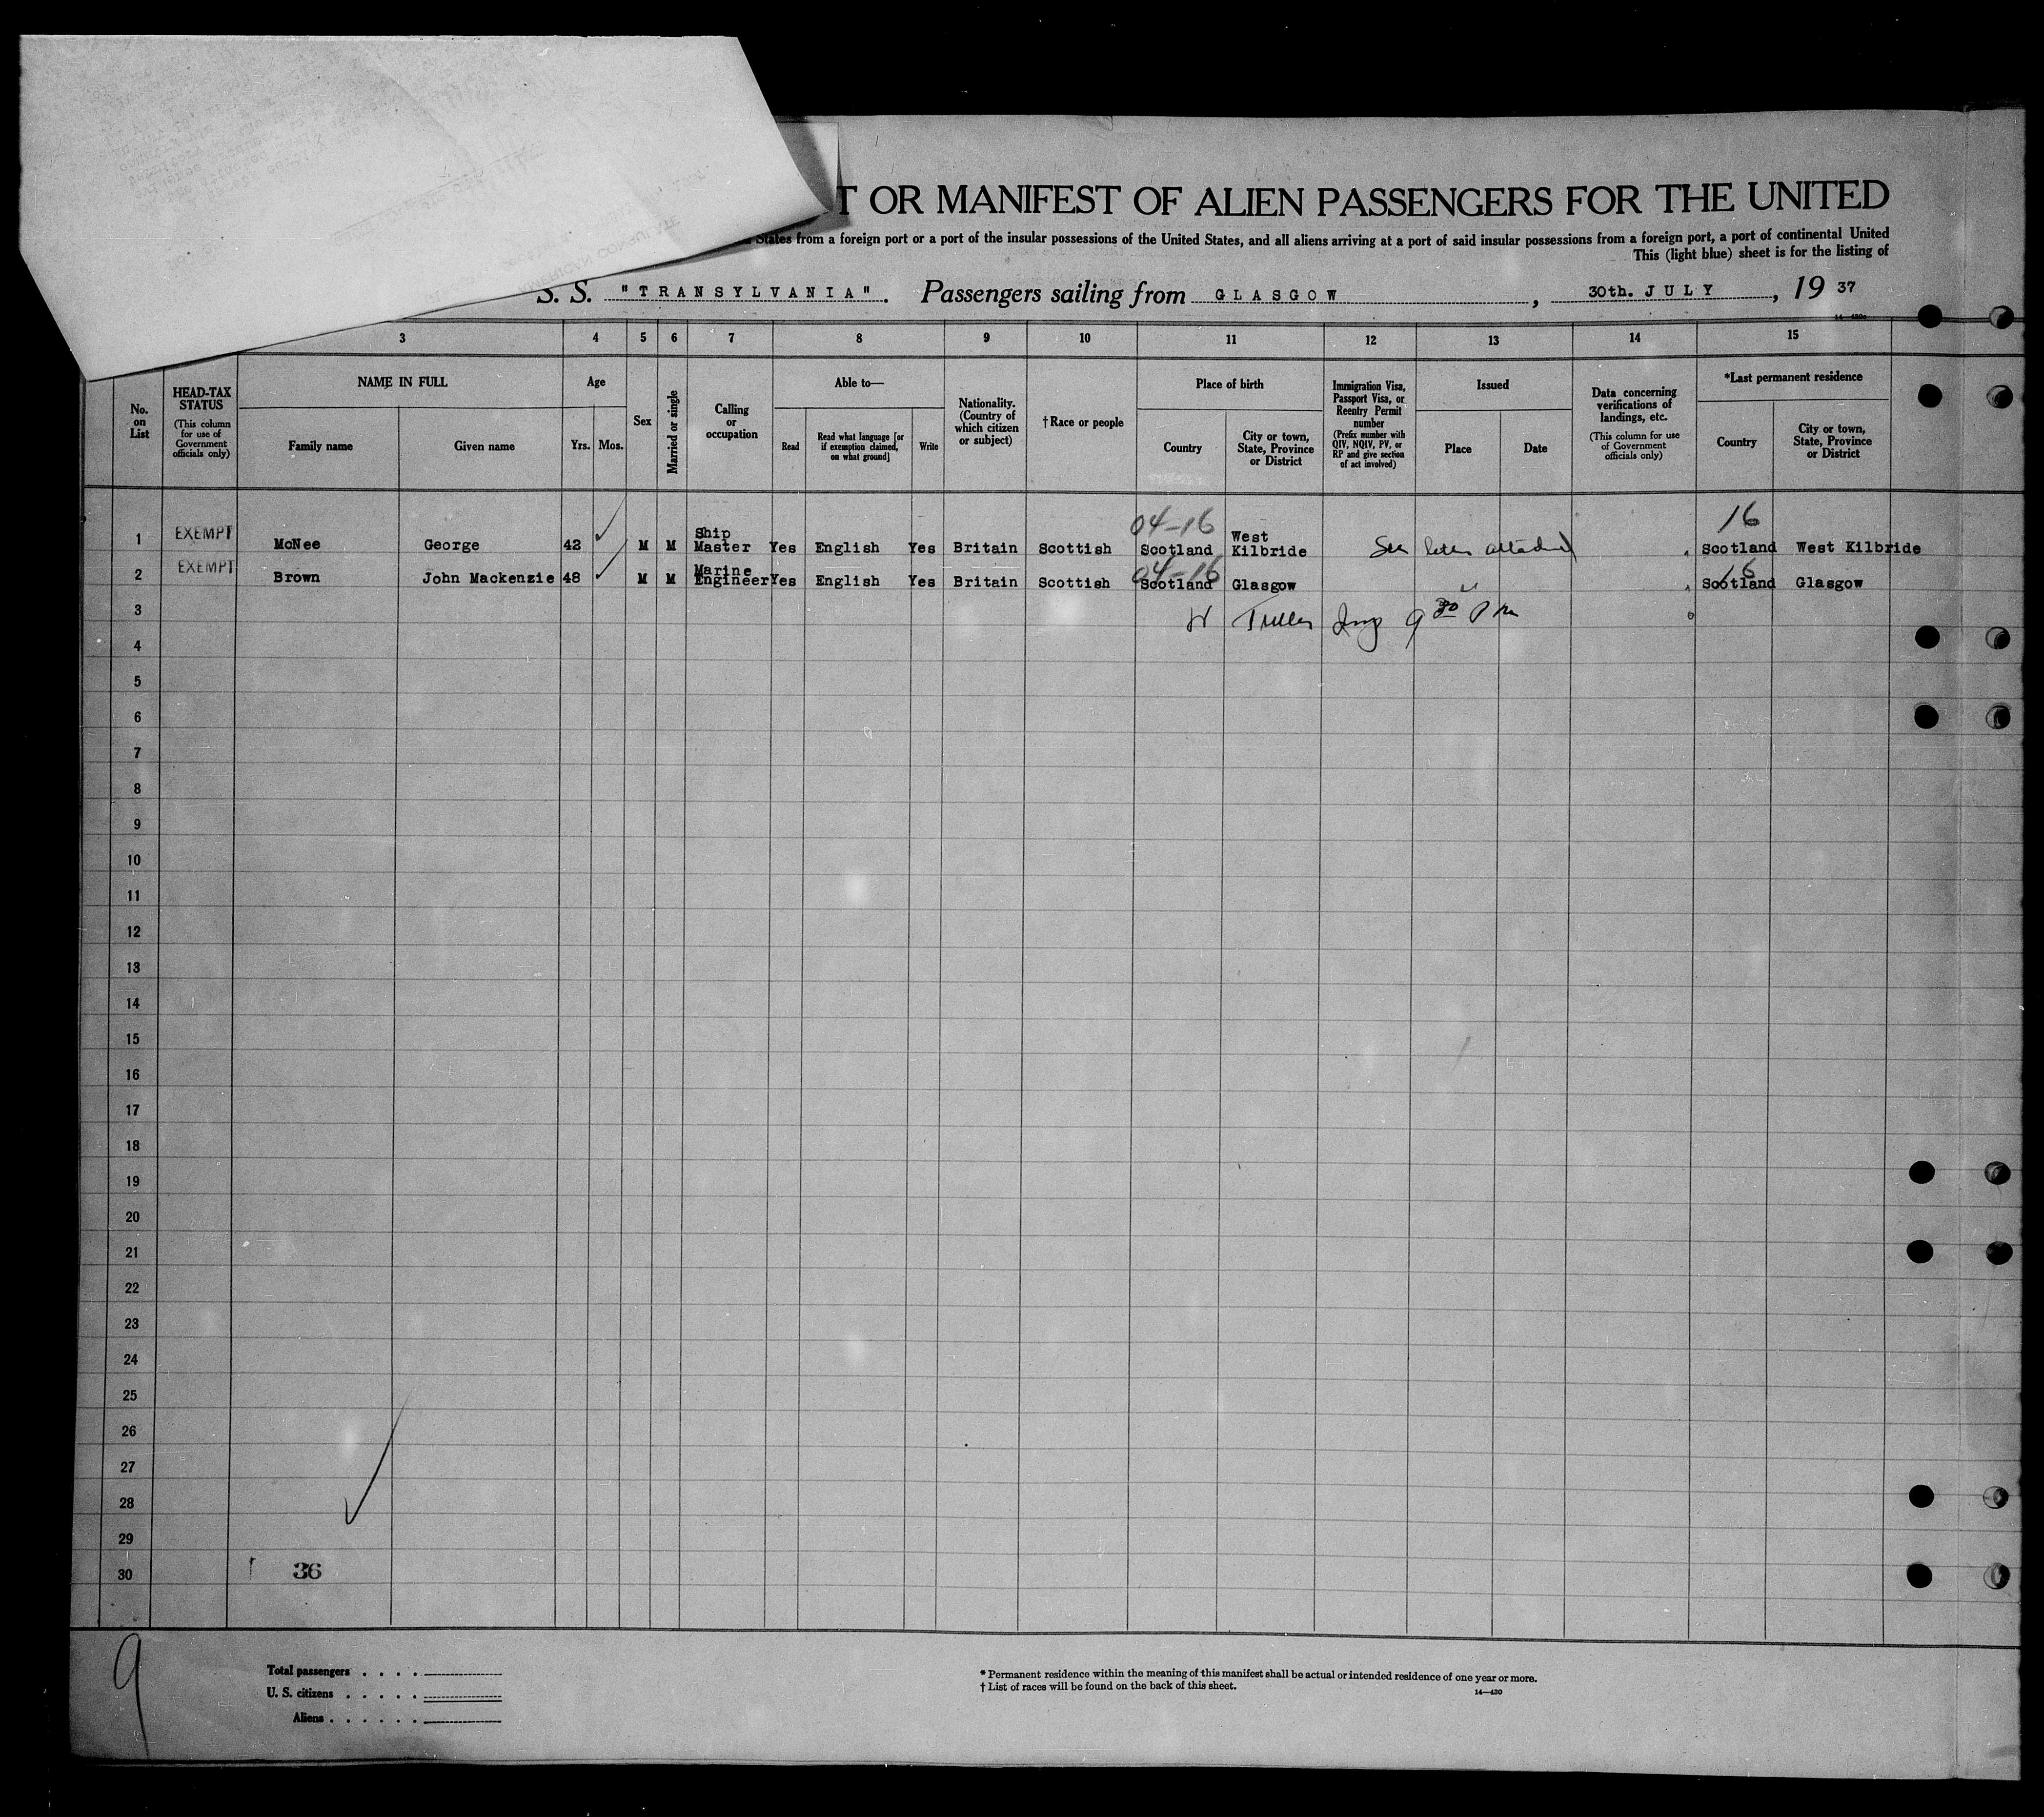 T OR MANIFEST OF ALIEN PASSENGERS FOR THE UNITED
States from a foreign port or a port of the insular possessions of the United States, and all aliens arriving at a port of said insular possessions from a foreign port, a port of continental United
This (light blue) sheet is for the listing of
S. S. "TRANSYLVANIA". Passengers sailing from GLASGOW, 30th. JULY, 19 37
3 4 5 6 7 8 9 10 11 12 13 14 15
No. on List
HEAD-TAX STATUS
(This column for use of Government officials only)
NAME IN FULL
Family name Given name
Age
Yrs. Mos.
Sex
Married or single
Calling or occupation
Able to—
Read
Read what language [or if exemption claimed, on what ground]
Write
Nationality. (Country of which citizen or subject)
†Race or people
Place of birth
Country
City or town, State, Province or District
Immigration Visa, Passport Visa, or Reentry Permit number
(Prefix number with QIV, NQIV, PV, or RP and give section of act involved)
Issued
Place Date
Data concerning verifications of landings, etc.
(This column for use of Government officials only)
*Last permanent residence
Country
City or town, State, Province or District
04-16 16
1 EXEMPT McNee George 42 M M Ship Master Yes English Yes Britain Scottish Scotland West Kilbride See letter attached Scotland West Kilbride
04-16 16
2 EXEMPT Brown John Mackenzie 48 M M Marine Engineer Yes English Yes Britain Scottish Scotland Glasgow Scotland Glasgow
3 9 30 PM
4
5
6
7
8
9
10
11
12
13
14
15
16
17
18
19
20
21
22
23
24
25
26
27
28
29
30 36
9
Total passengers . . . .
U. S. citizens . . . . .
Aliens . . . . . .
* Permanent residence within the meaning of this manifest shall be actual or intended residence of one year or more.
† List of races will be found on the back of this sheet.
14—430